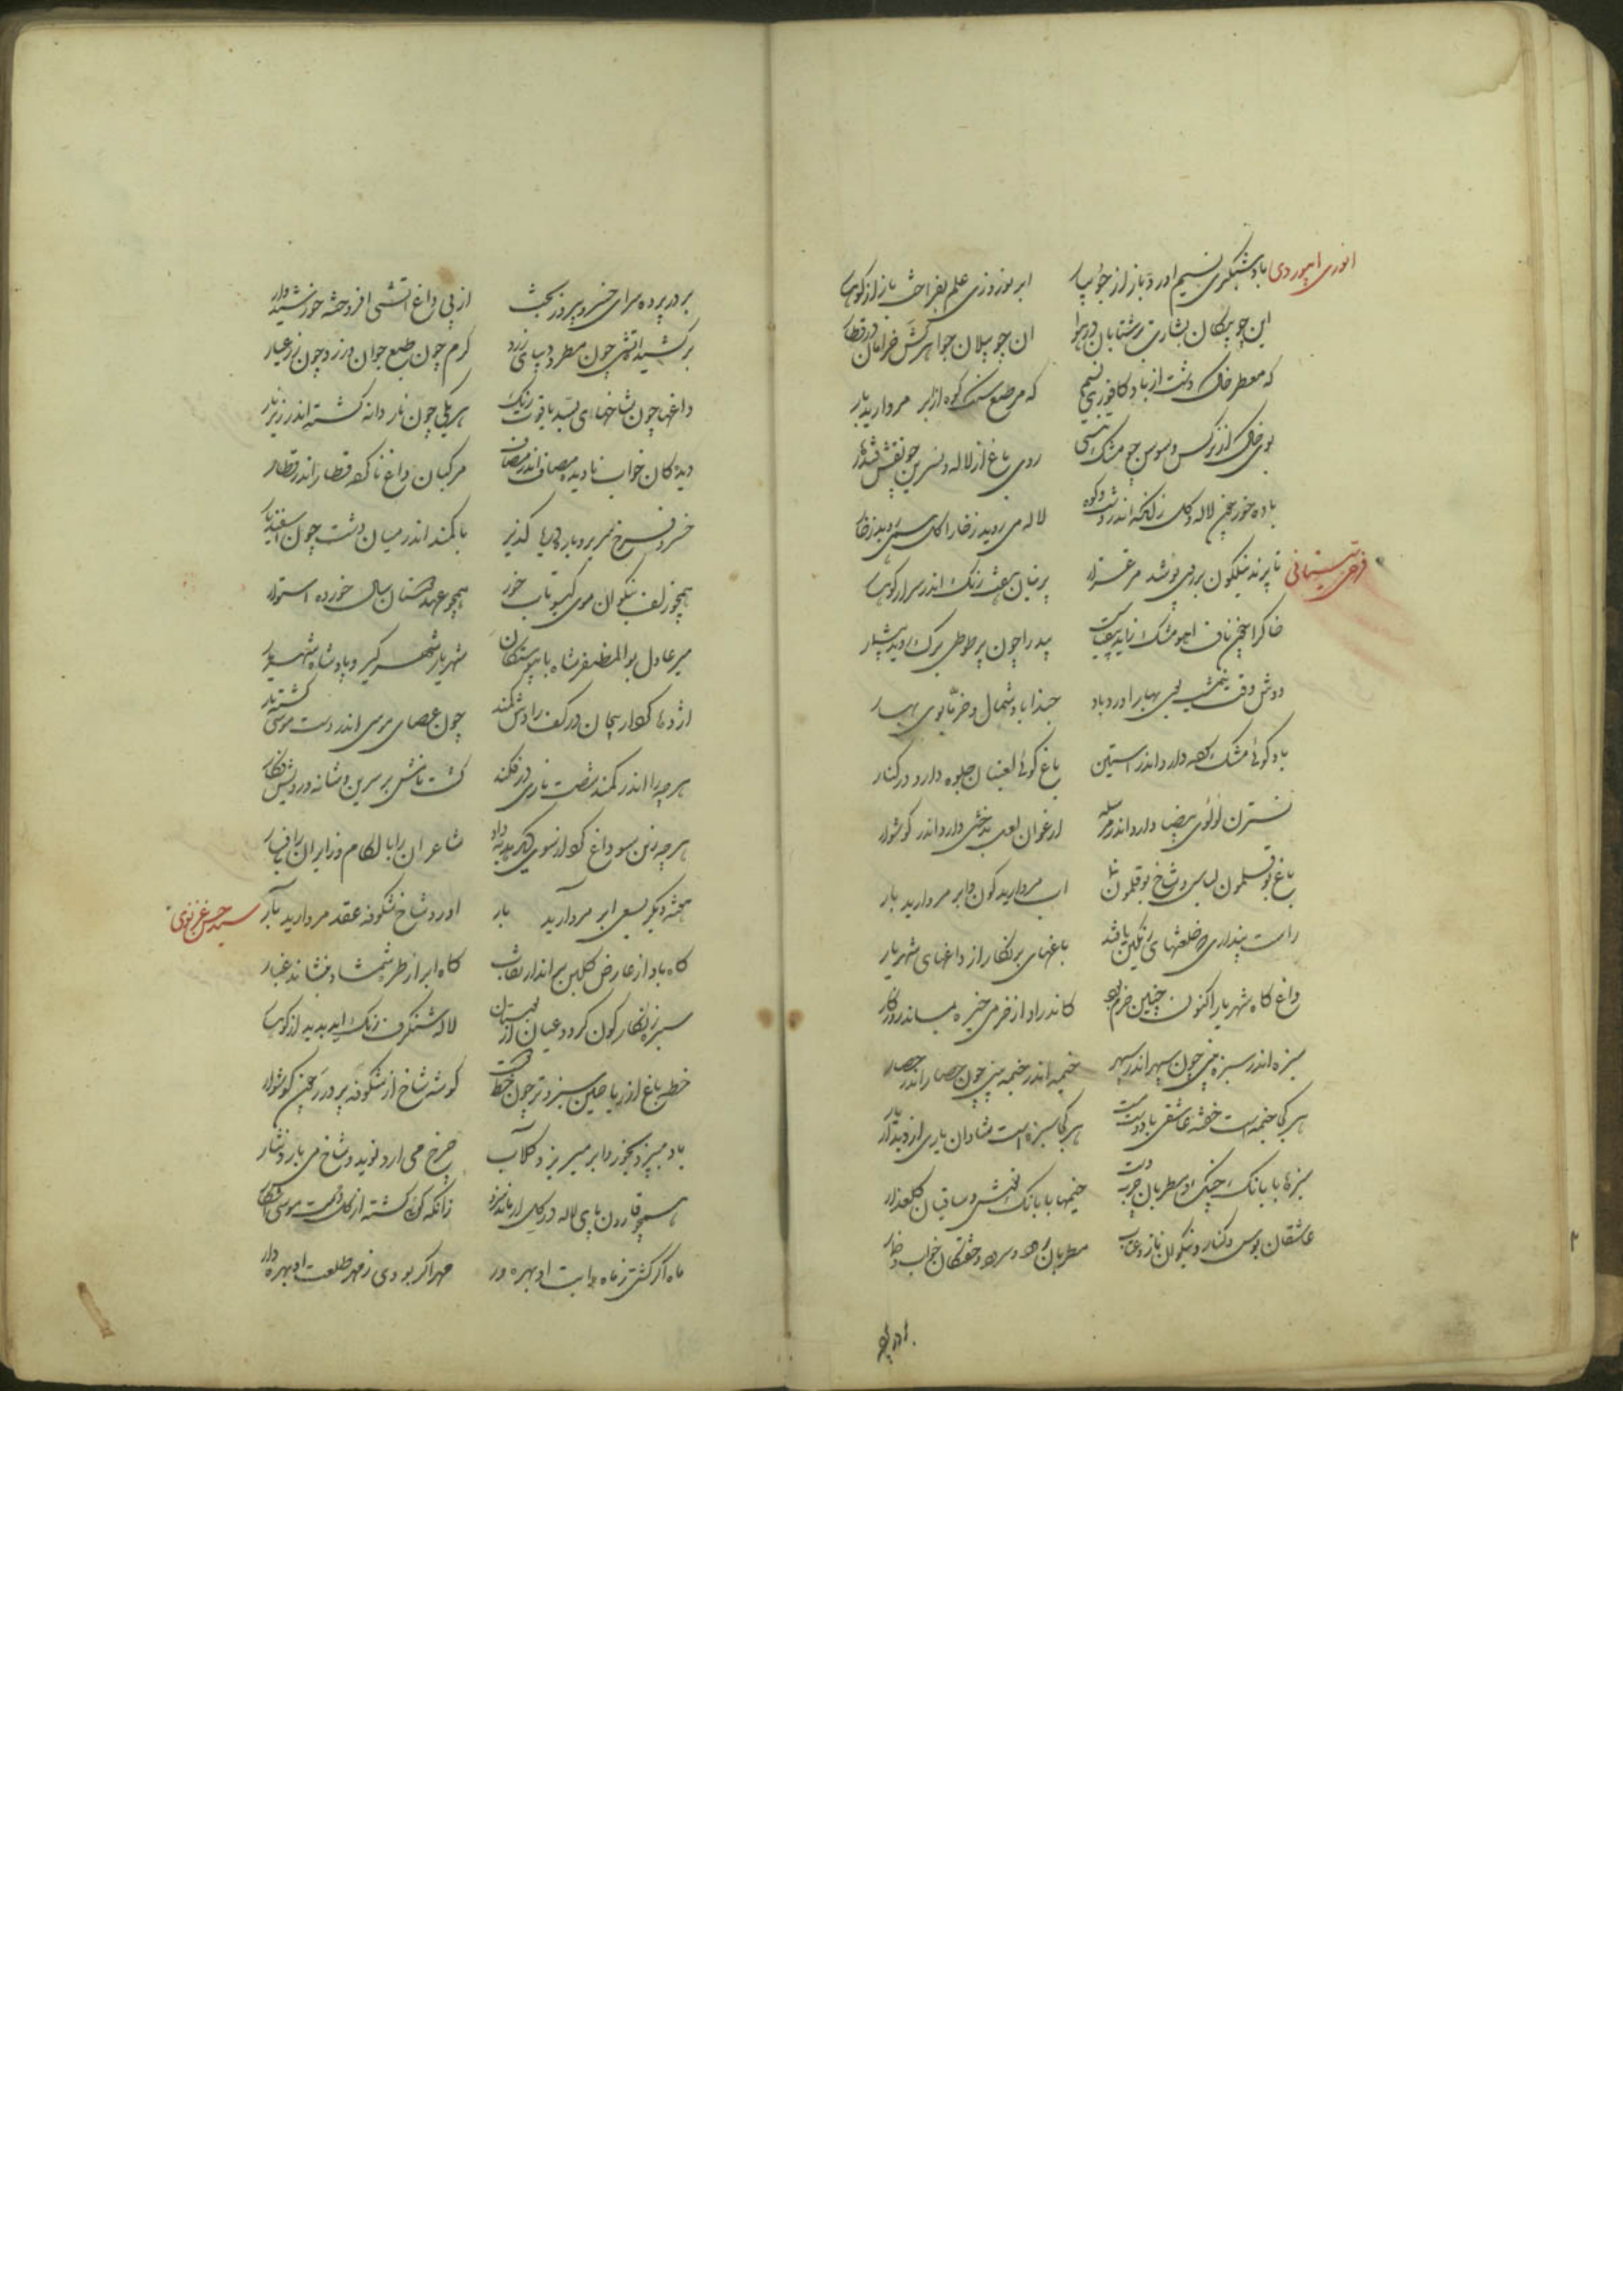 انوری ابیوردی باد شبگیری نسیم اورد باز از جویبار ابر نوروزی علم بفراخت باز از کوهسار
این چو پیکان بشارت بر شتابان در هوا ان چو پیلان جواهرکش خرامان در قطار
که معطر خاک دشت از باد کافوری نسیم که مرصع سنک کوه از ابر مروارید بار
بوی خاک از نرکس و سوسن چو مشک تبتی روی باغ از لاله و نسرین چو نقش قندهار
باده خور چون لاله و کل زانکه اندر دشت و کوه لاله می روید ز خارا کل همی روید ز خار
فرخی سیستانی تا پرند نیلکون بر روی پوشد مرغزار پرنیان هفت رنک اندر سر ارد کوهسار
خاک را چون ناف اهو مشک زاید بیقیاس بید را چون پر طوطی برک روید بیشمار
دوش وقت نیمشب بوی بهار اورد باد حبذا باد شمال و خرما بوی بهار
باد کوئی مشک سوده دارد اندر استین باغ کوئی لعبتان جلوه دارد در کنار
نسترن لؤلؤی بیضا دارد اندر مرسله ارغوان لعل بدخشی دارد اندر کوشوار
باغ بوقلمون لباس و شاخ بوقلمون نما اب مروارید کون و ابر مروارید بار
راست پنداری که خلعتهای رنکین یافتند باغهای پرنکار از داغهای شهریار
داغ کاه شهریار اکنون چنین خرم بود کاندر او از خرمی خیره بماند روزکار
سبزه اندر سبزه بینی چون سپهر اندر سپهر خیمه اندر خیمه بینی چون حصار اندر حصار
هر کجا خیمه است خفته عاشقی با دوست مست هر کجا سبزه است شادان یاری از دیدار یار
سبزها با بانک چنک و مطربان چرب دست خیمها با بانک نوش و ساقیان کلعذار
عاشقان بوس و کنار و نیکوان ناز و عتاب مطربان رود و سرود و خفتکان خواب و خمار
بر در پرده سرای خسرو پیروز بخت از پی داغ اتشی افروخته خورشیدوار
بر کشیده اتشی چون مطرد دیبای زرد کرم چون طبع جوان و زرد چون زر عیار
داغها چون شاخهای بسد یاقوت رنک هر یکی چون نار دانه کشته اندر زیر نار
ریدکان خواب نادیده مصاف اندر مصاف مرکبان داغ ناکرده قطار اندر قطار
خسرو فرخ سیر بر باره دریا کذر با کمند اندر میان دشت چون اسفندیار
همچو زلف نیکوان موی کیسو تاب خور همچو عهد دوستان سال خورده استوار
میر عادل بوالمظفر شاه با پیوستکان شهریار شهر کیر و پادشاه شهریار
اژدها کردار پیچان در کف رادش کمند چون عصای موسی اندر دست موسی کشته مار
هر چه را اندر کمند شصت بازی در فکند کشت نامش بر سرین و شانه و رویش نکار
هر چه زین سو داغ کرد از سوی دیکر هدیه داد شاعران را با لکام و زایران را با فسار
سید حسن غزنوی تحفه دیکر بسعی ابر مروارید بار اورد شاخ شکوفه عقد مروارید بار
کاه باد از عارض کلبن بر اندازد نقاب کاه ابر از طره شمشاد بفشاند غبار
سبزه زنکار کون کردد عیان از بوستان لاله شنکرف رنک اید پدید از کوهسار
خطه باغ از ریاحین سبز و تر چون خط دوست کوشه شاخ از شکوفه پر درر چون کوشوار
باد میبیزد بخور و ابر میریزد کلاب چرخ می ارد نوید و شاخ می بارد نثار
همچو قارون پای لاله در کل ار ماند سزد زانکه کوئی کشته از کل دست موسی اشکار
ماه اکر کشتی ز ماه رایت او بهره ور مهر اکر بودی ز مهر طلعت او بهره دار